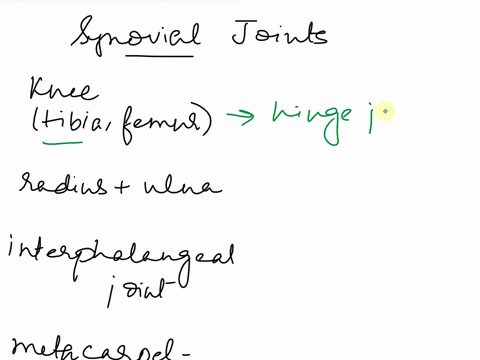 Synovial Joints
Knee
(tibia, femur) → hinge j
radius + ulna
interphalangeal
joint
metacarpel-